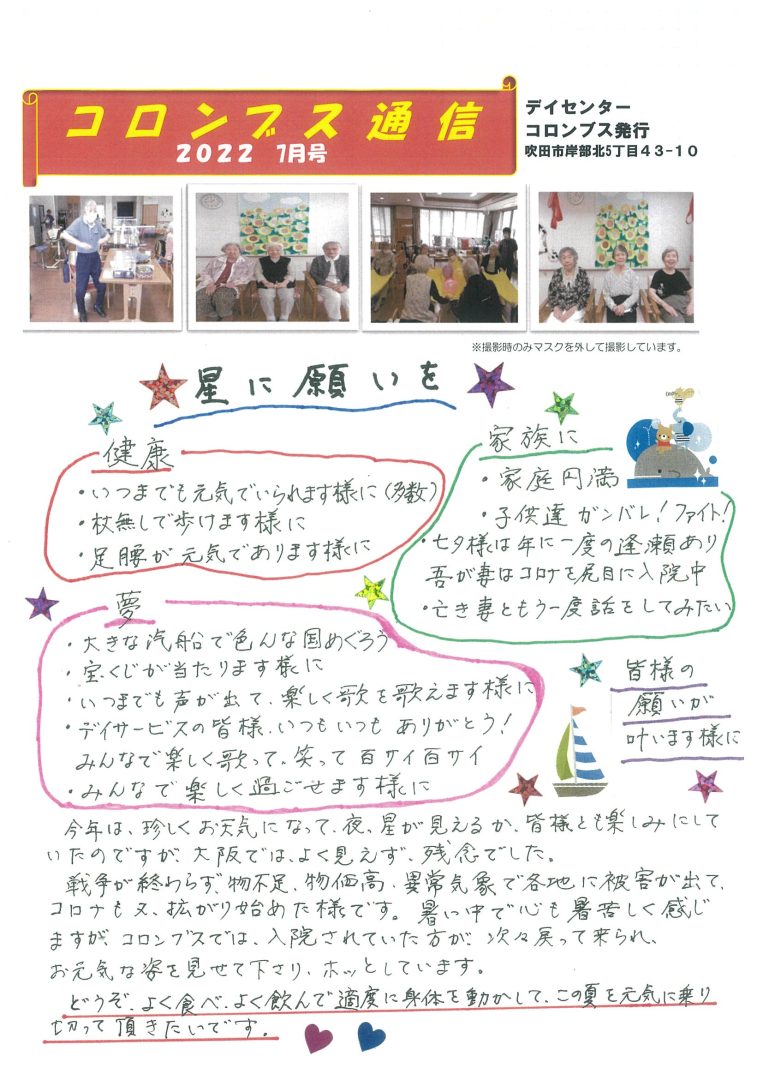 コロンブス通信
2022 7月号
デイセンター
コロンブス発行
吹田市岸部北5丁目43-10
※撮影時のみマスクを外して撮影しています。
星に願いを
健康
・いつまでも元気でいられます様に(多数)
・杖無しで歩けます様に
・足腰が元気であります様に
家族に
・家庭円満
・子供達ガンバレ!ファイト!
・七夕様は年に一度の逢瀬あり
吾が妻はコロナを尻目に入院中
・亡き妻ともう一度話をしてみたい
夢
・大きな汽船で色んな国めぐろう
・宝くじが当たります様に
・いつまでも声が出て、楽しく歌を歌えます様に
・デイサービスの皆様、いつもいつもありがとう!
みんなで楽しく歌って、笑って百サイ百サイ
・みんなで楽しく過ごせます様に
皆様の
願いが
叶います様に
今年は、珍しくお天気になって、夜、星が見えるか、皆様とも楽しみにして
いたのですが、大阪では、よく見えず、残念でした。
戦争が終わらず、物不足、物価高、異常気象で各地に被害が出て、
コロナも又、拡がり始めた様です。暑い中で心も暑苦しく感じ
ますが、コロンブスでは、入院されていた方が、次々戻って来られ、
お元気な姿を見せて下さり、ホッとしています。
どうぞ、よく食べ、よく飲んで適度に身体を動かして、この夏を元気に乗り
切って頂きたいです。